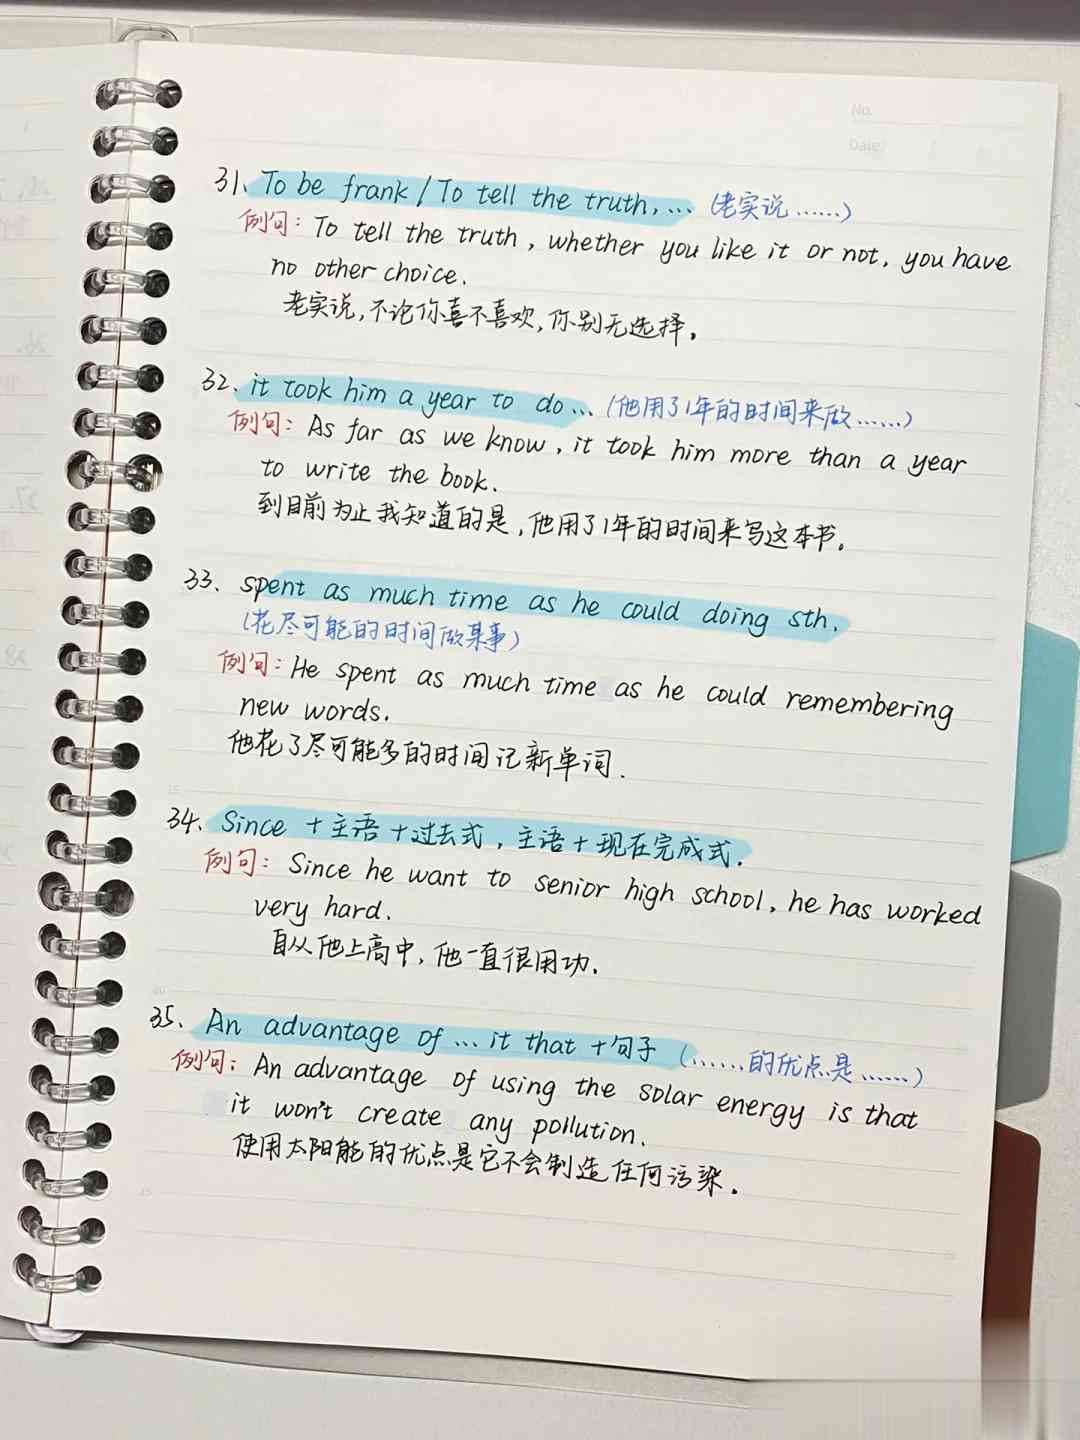 No.
Date
31、To be frank / To tell the truth, ... (老实说……)
例句: To tell the truth, whether you like it or not, you have
no other choice.
老实说,不论你喜不喜欢,你别无选择。
32、it took him a year to do... (他用了1年的时间来做……)
例句: As far as we know, it took him more than a year
to write the book.
到目前为止我知道的是,他用了1年的时间来写这本书。
33、spent as much time as he could doing sth.
(花尽可能的时间做某事)
例句: He spent as much time as he could remembering
new words.
他花了尽可能多的时间记新单词.
34、Since +主语+过去式,主语+现在完成式.
例句: Since he want to senior high school, he has worked
very hard.
自从他上高中,他一直很用功.
35、An advantage of ... it that +句子 (……的优点是……)
例句: An advantage of using the solar energy is that
it won't create any pollution.
使用太阳能的优点是它不会制造任何污染.